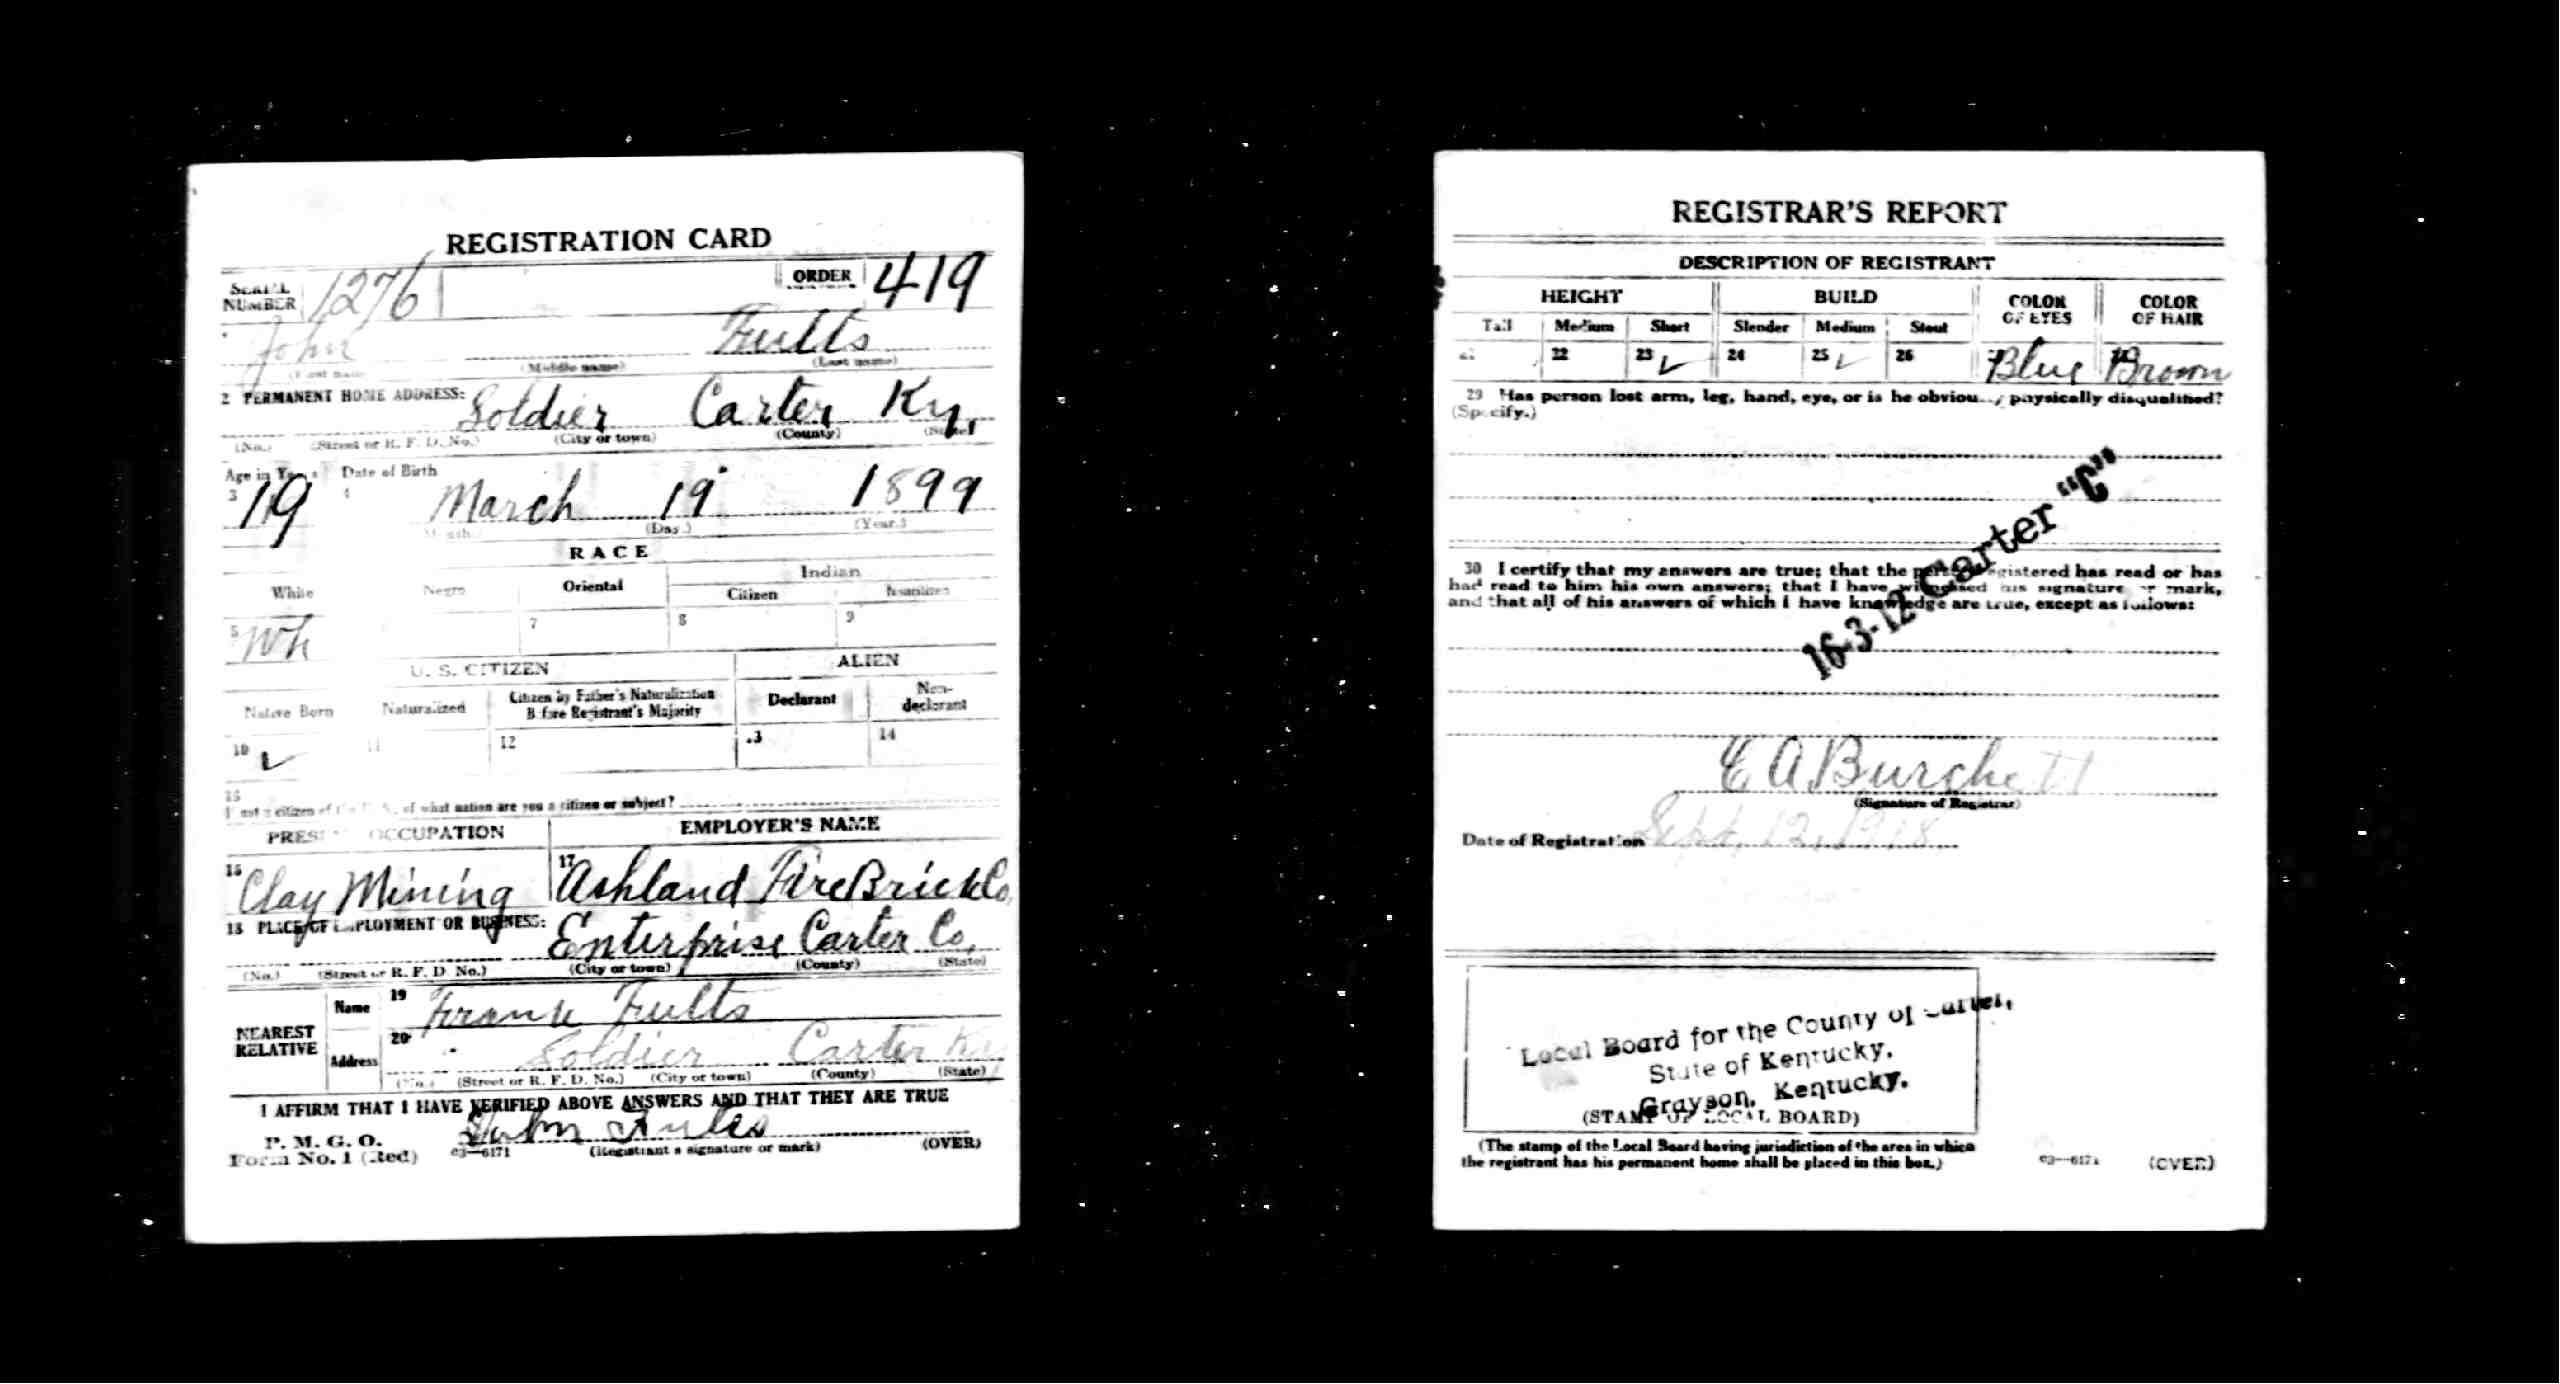 REGISTRATION CARD
SERIAL NUMBER 1276 ORDER 419
John Fults
(First name) (Middle name) (Last name)
2 PERMANENT HOME ADDRESS: Soldier Carter Ky.
(No.) (Street or R. F. D. No.) (City or town) (County) (State)
Age in Years Date of Birth
3 19 4 March 19 1899
(Month.) (Day.) (Year.)
RACE
White Negro Oriental Indian
Citizen Noncitizen
5 Wh 7 8 9
U. S. CITIZEN ALIEN
Native Born Naturalized Citizen by Father's Naturalization Before Registrant's Majority Declarant Non-declarant
10 ✓ 11 12 13 14
15
If not a citizen of the U. S., of what nation are you a citizen or subject?
PRESENT OCCUPATION EMPLOYER'S NAME
16 Clay Mining 17 Ashland Fire Brick Co.
18 PLACE OF EMPLOYMENT OR BUSINESS: Enterprise Carter Co.
(No.) (Street or R. F. D. No.) (City or town) (County) (State)
NEAREST RELATIVE Name 19 Frank Fults
Address 20 Soldier Carter Ky
(No.) (Street or R. F. D. No.) (City or town) (County) (State)
I AFFIRM THAT I HAVE VERIFIED ABOVE ANSWERS AND THAT THEY ARE TRUE
P. M. G. O. John Fults
Form No. 1 (Red) 03—6171 (Registrant's signature or mark) (OVER)
REGISTRAR'S REPORT
DESCRIPTION OF REGISTRANT
HEIGHT BUILD COLOR OF EYES COLOR OF HAIR
Tall Medium Short Slender Medium Stout
21 22 23 ✓ 24 25 ✓ 26 Blue Brown
29 Has person lost arm, leg, hand, eye, or is he obviously physically disqualified?
(Specify.)
16-3-12 Carter "C"
30 I certify that my answers are true; that the person registered has read or has
had read to him his own answers; that I have witnessed his signature or mark,
and that all of his answers of which I have knowledge are true, except as follows:
E A Burchett
(Signature of Registrar)
Date of Registration Sept. 12, 1918
Local Board for the County of Carter,
State of Kentucky,
Grayson, Kentucky.
(STAMP OF LOCAL BOARD)
(The stamp of the Local Board having jurisdiction of the area in which
the registrant has his permanent home shall be placed in this box.)
03—6171 (OVER)